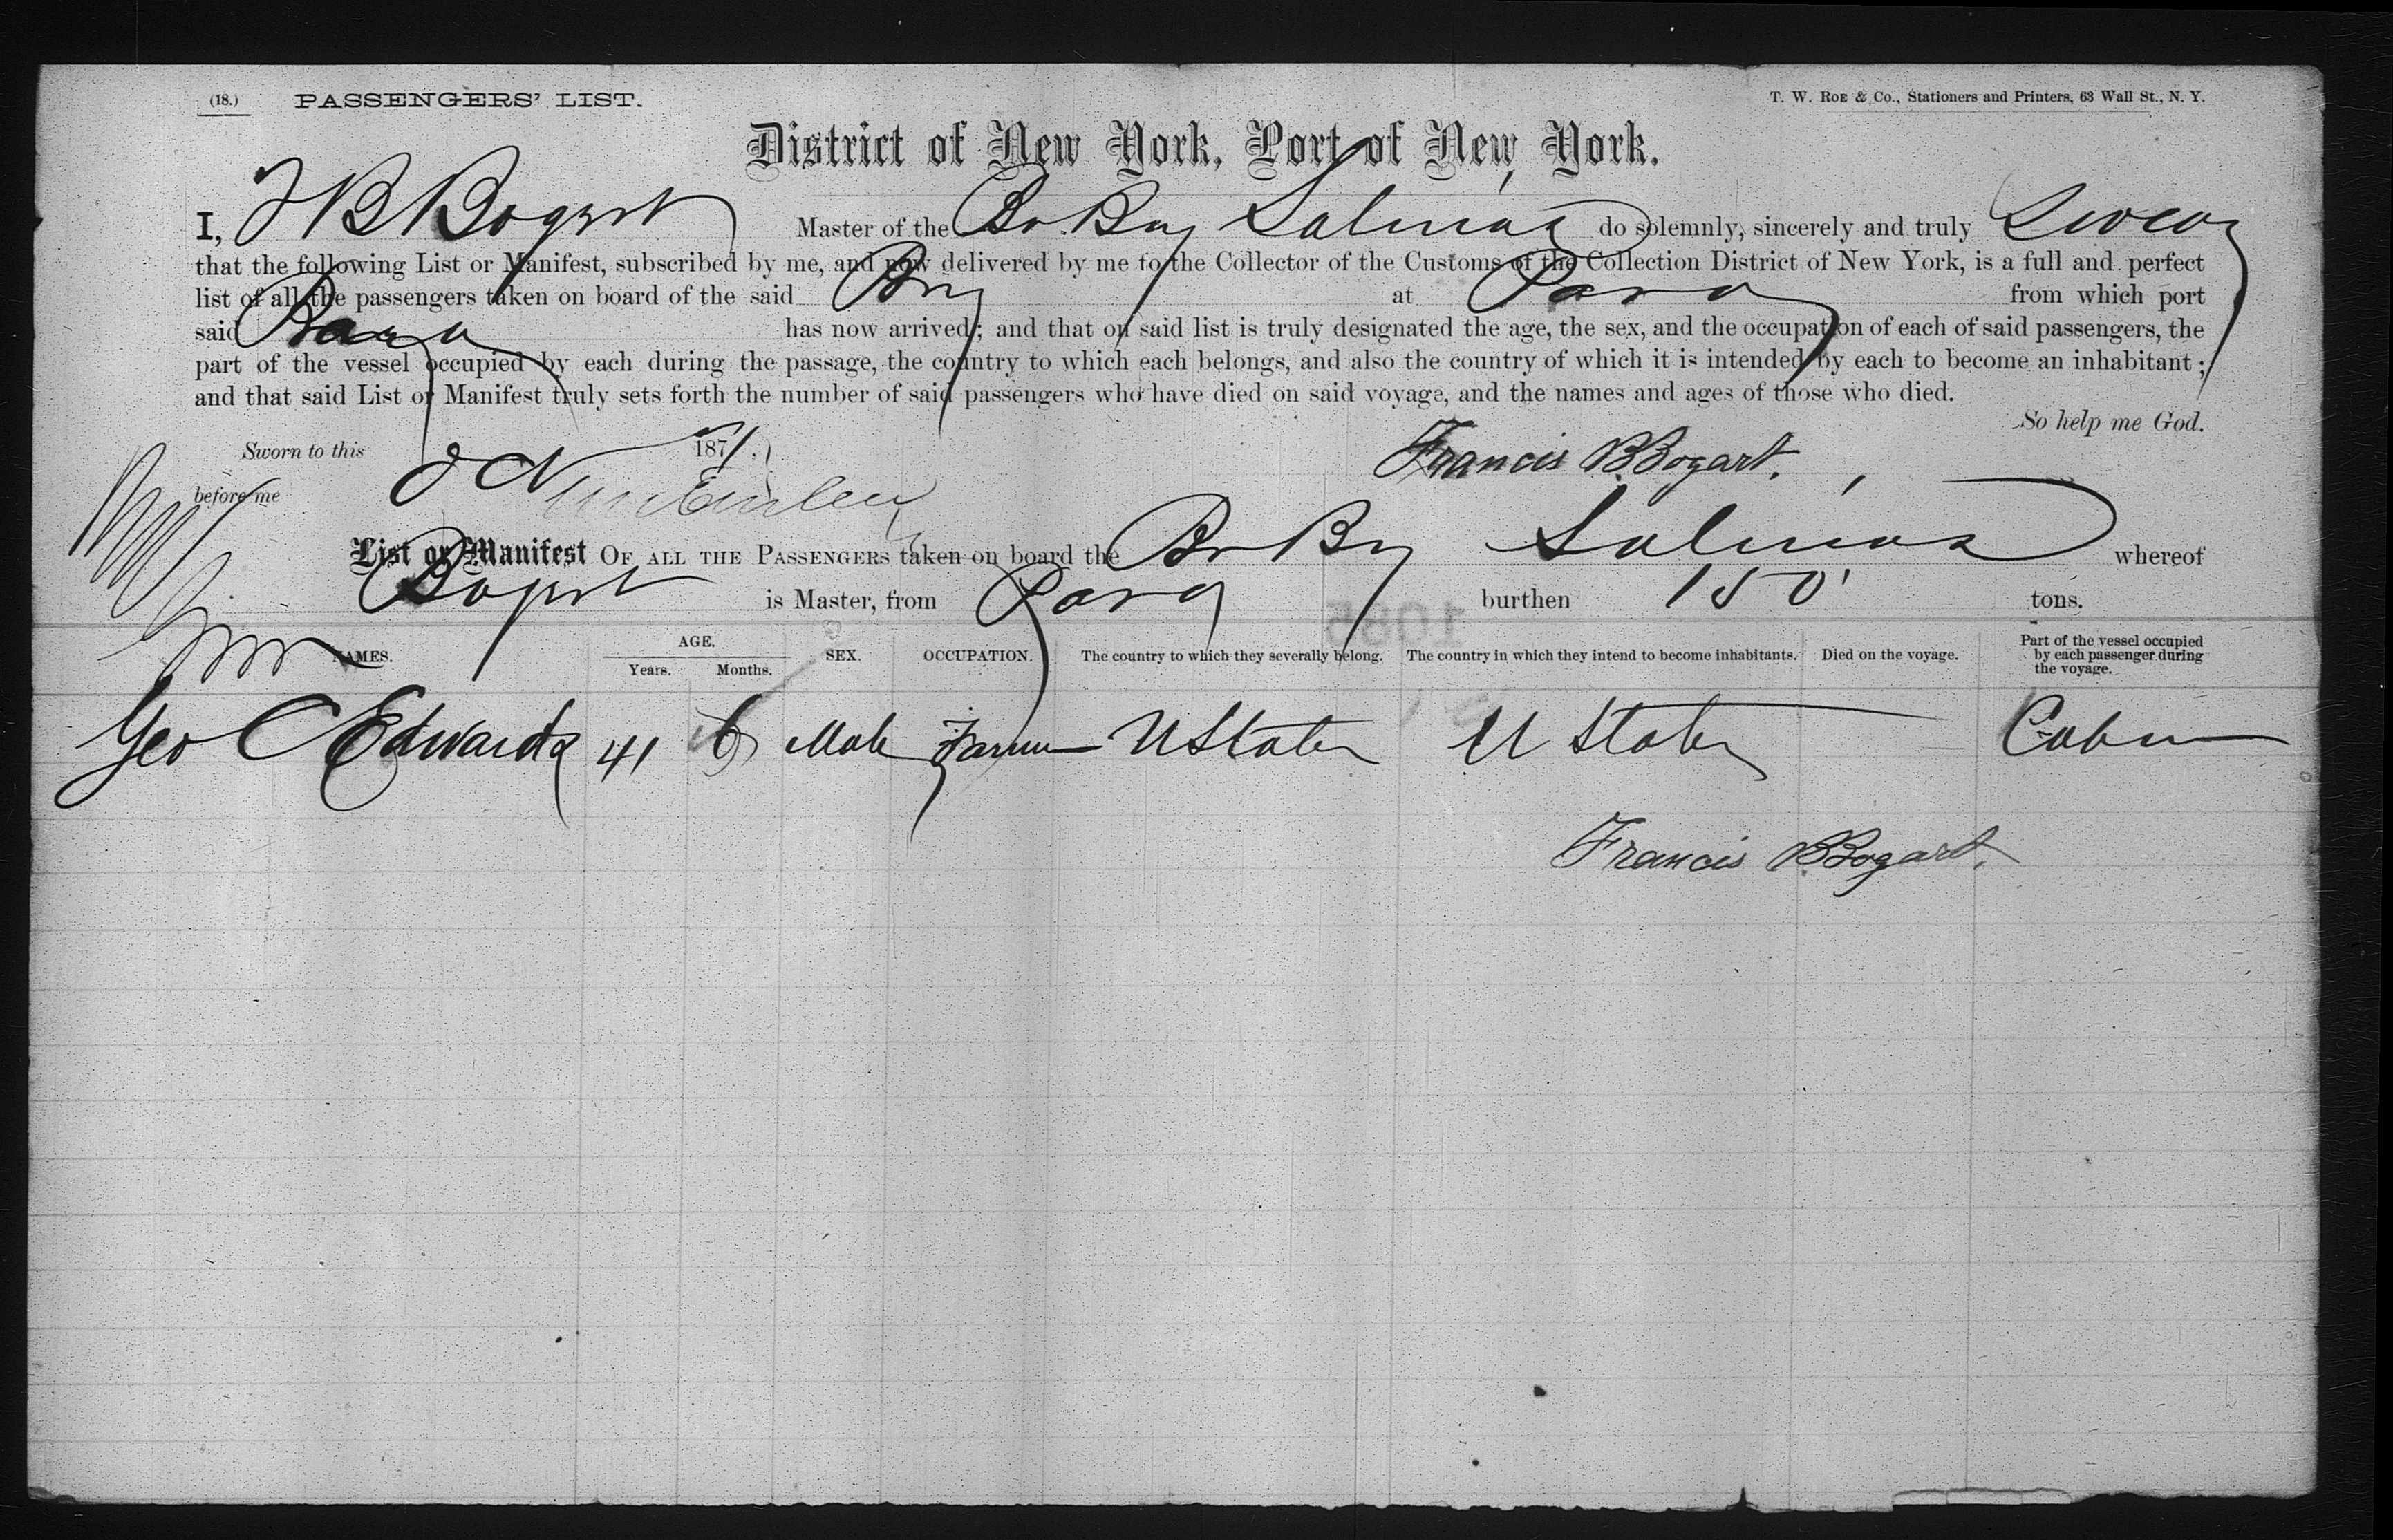 (18.) PASSENGERS' LIST. T. W. ROE & Co., Stationers and Printers, 63 Wall St., N. Y.
District of New York, Port of New York.
I, F B Bogart Master of the Br. Brig Salinas do solemnly, sincerely and truly Swear
that the following List or Manifest, subscribed by me, and now delivered by me to the Collector of the Customs of the Collection District of New York, is a full and perfect
list of all the passengers taken on board of the said Brig at Para from which port
said Barq has now arrived; and that on said list is truly designated the age, the sex, and the occupation of each of said passengers, the
part of the vessel occupied by each during the passage, the country to which each belongs, and also the country of which it is intended by each to become an inhabitant;
and that said List or Manifest truly sets forth the number of said passengers who have died on said voyage, and the names and ages of those who died.
So help me God.
Sworn to this 1871. Francis B Bogart.
before me
List or Manifest OF ALL THE PASSENGERS taken on board the Br Brig Salinas whereof
Bogart is Master, from Para burthen 150 tons.
NAMES. AGE. Years. Months. SEX. OCCUPATION. The country to which they severally belong. The country in which they intend to become inhabitants. Died on the voyage. Part of the vessel occupied by each passenger during the voyage.
Geo C Edwards 41 6 Male Farmer U States U States Cabin
Francis B Bogart.